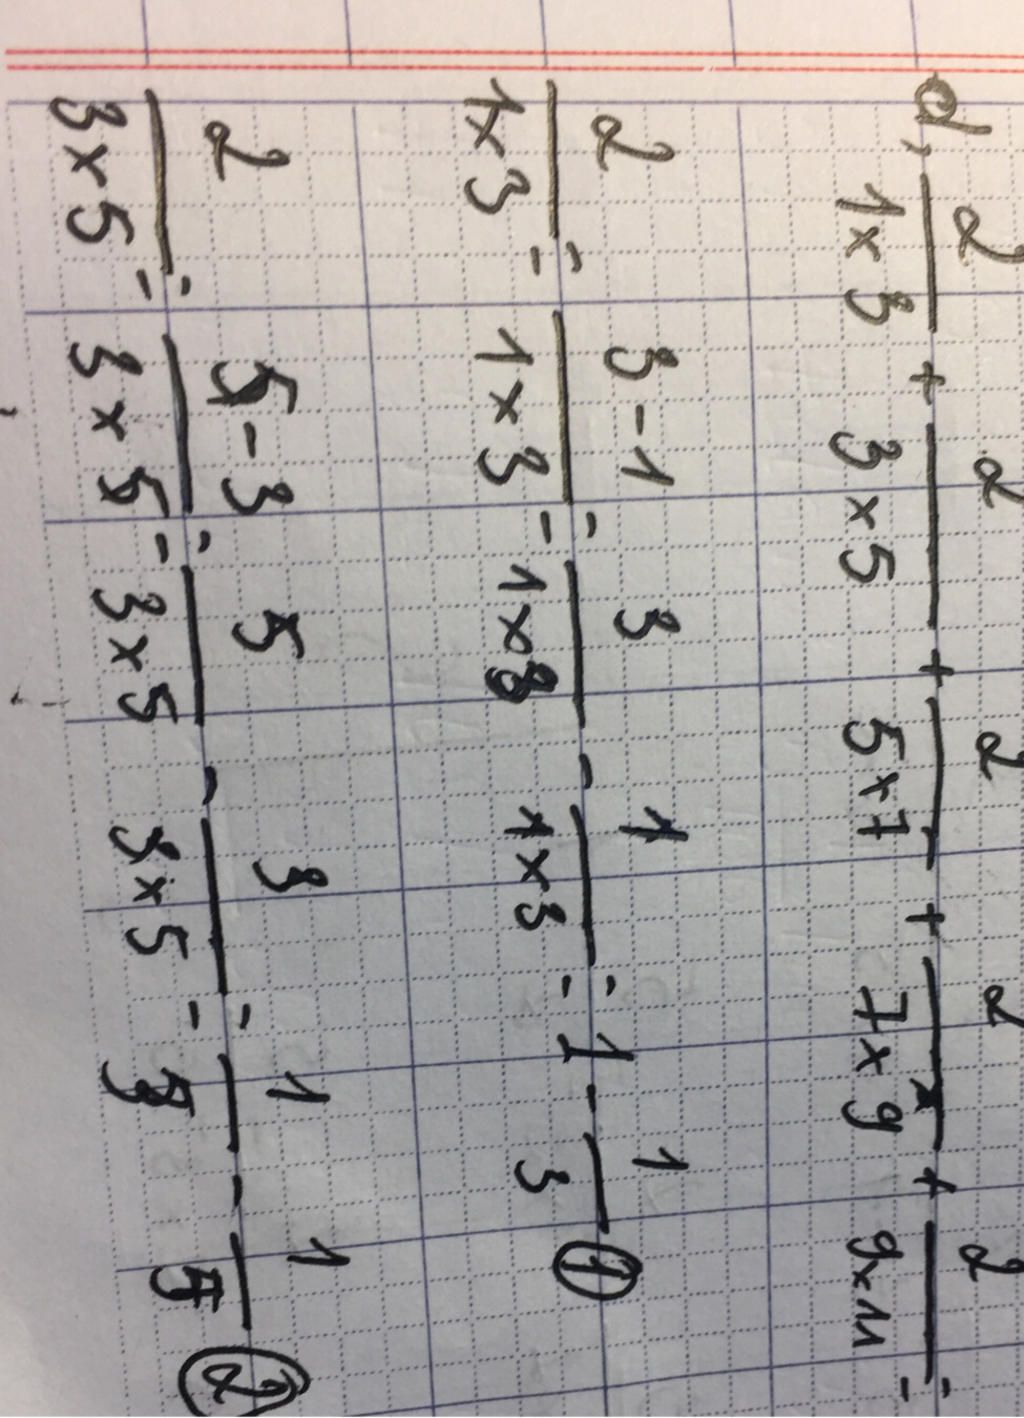 a, 2/1×3 + 2/3×5 + 2/5×7 + 2/7×9 + 2/9×11 =
2/1×3 = 3-1/1×3 = 3/1×3 - 1/1×3 = 1 - 1/3 ①
2/3×5 = 5-3/3×5 = 5/3×5 - 3/3×5 = 1/3 - 1/5 ②